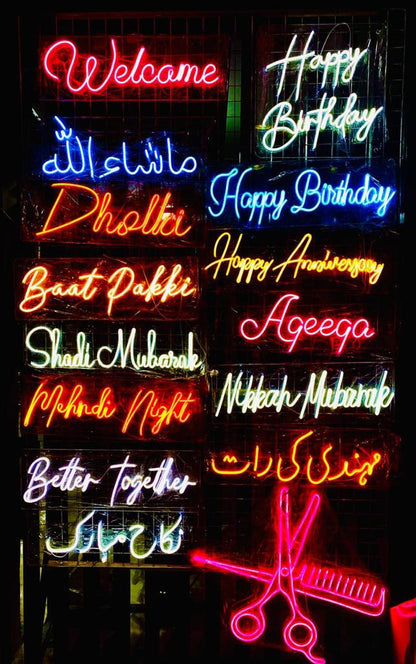 Welcome
Happy
Birthday
ماشاءالله
Happy Birthday
Dholki
Happy Anniversary
Baat Pakki
Aqeeqa
Shadi Mubarak
Nikkah Mubarak
Mehndi Night
مہندی کی رات
Better Together
نکاح مبارک